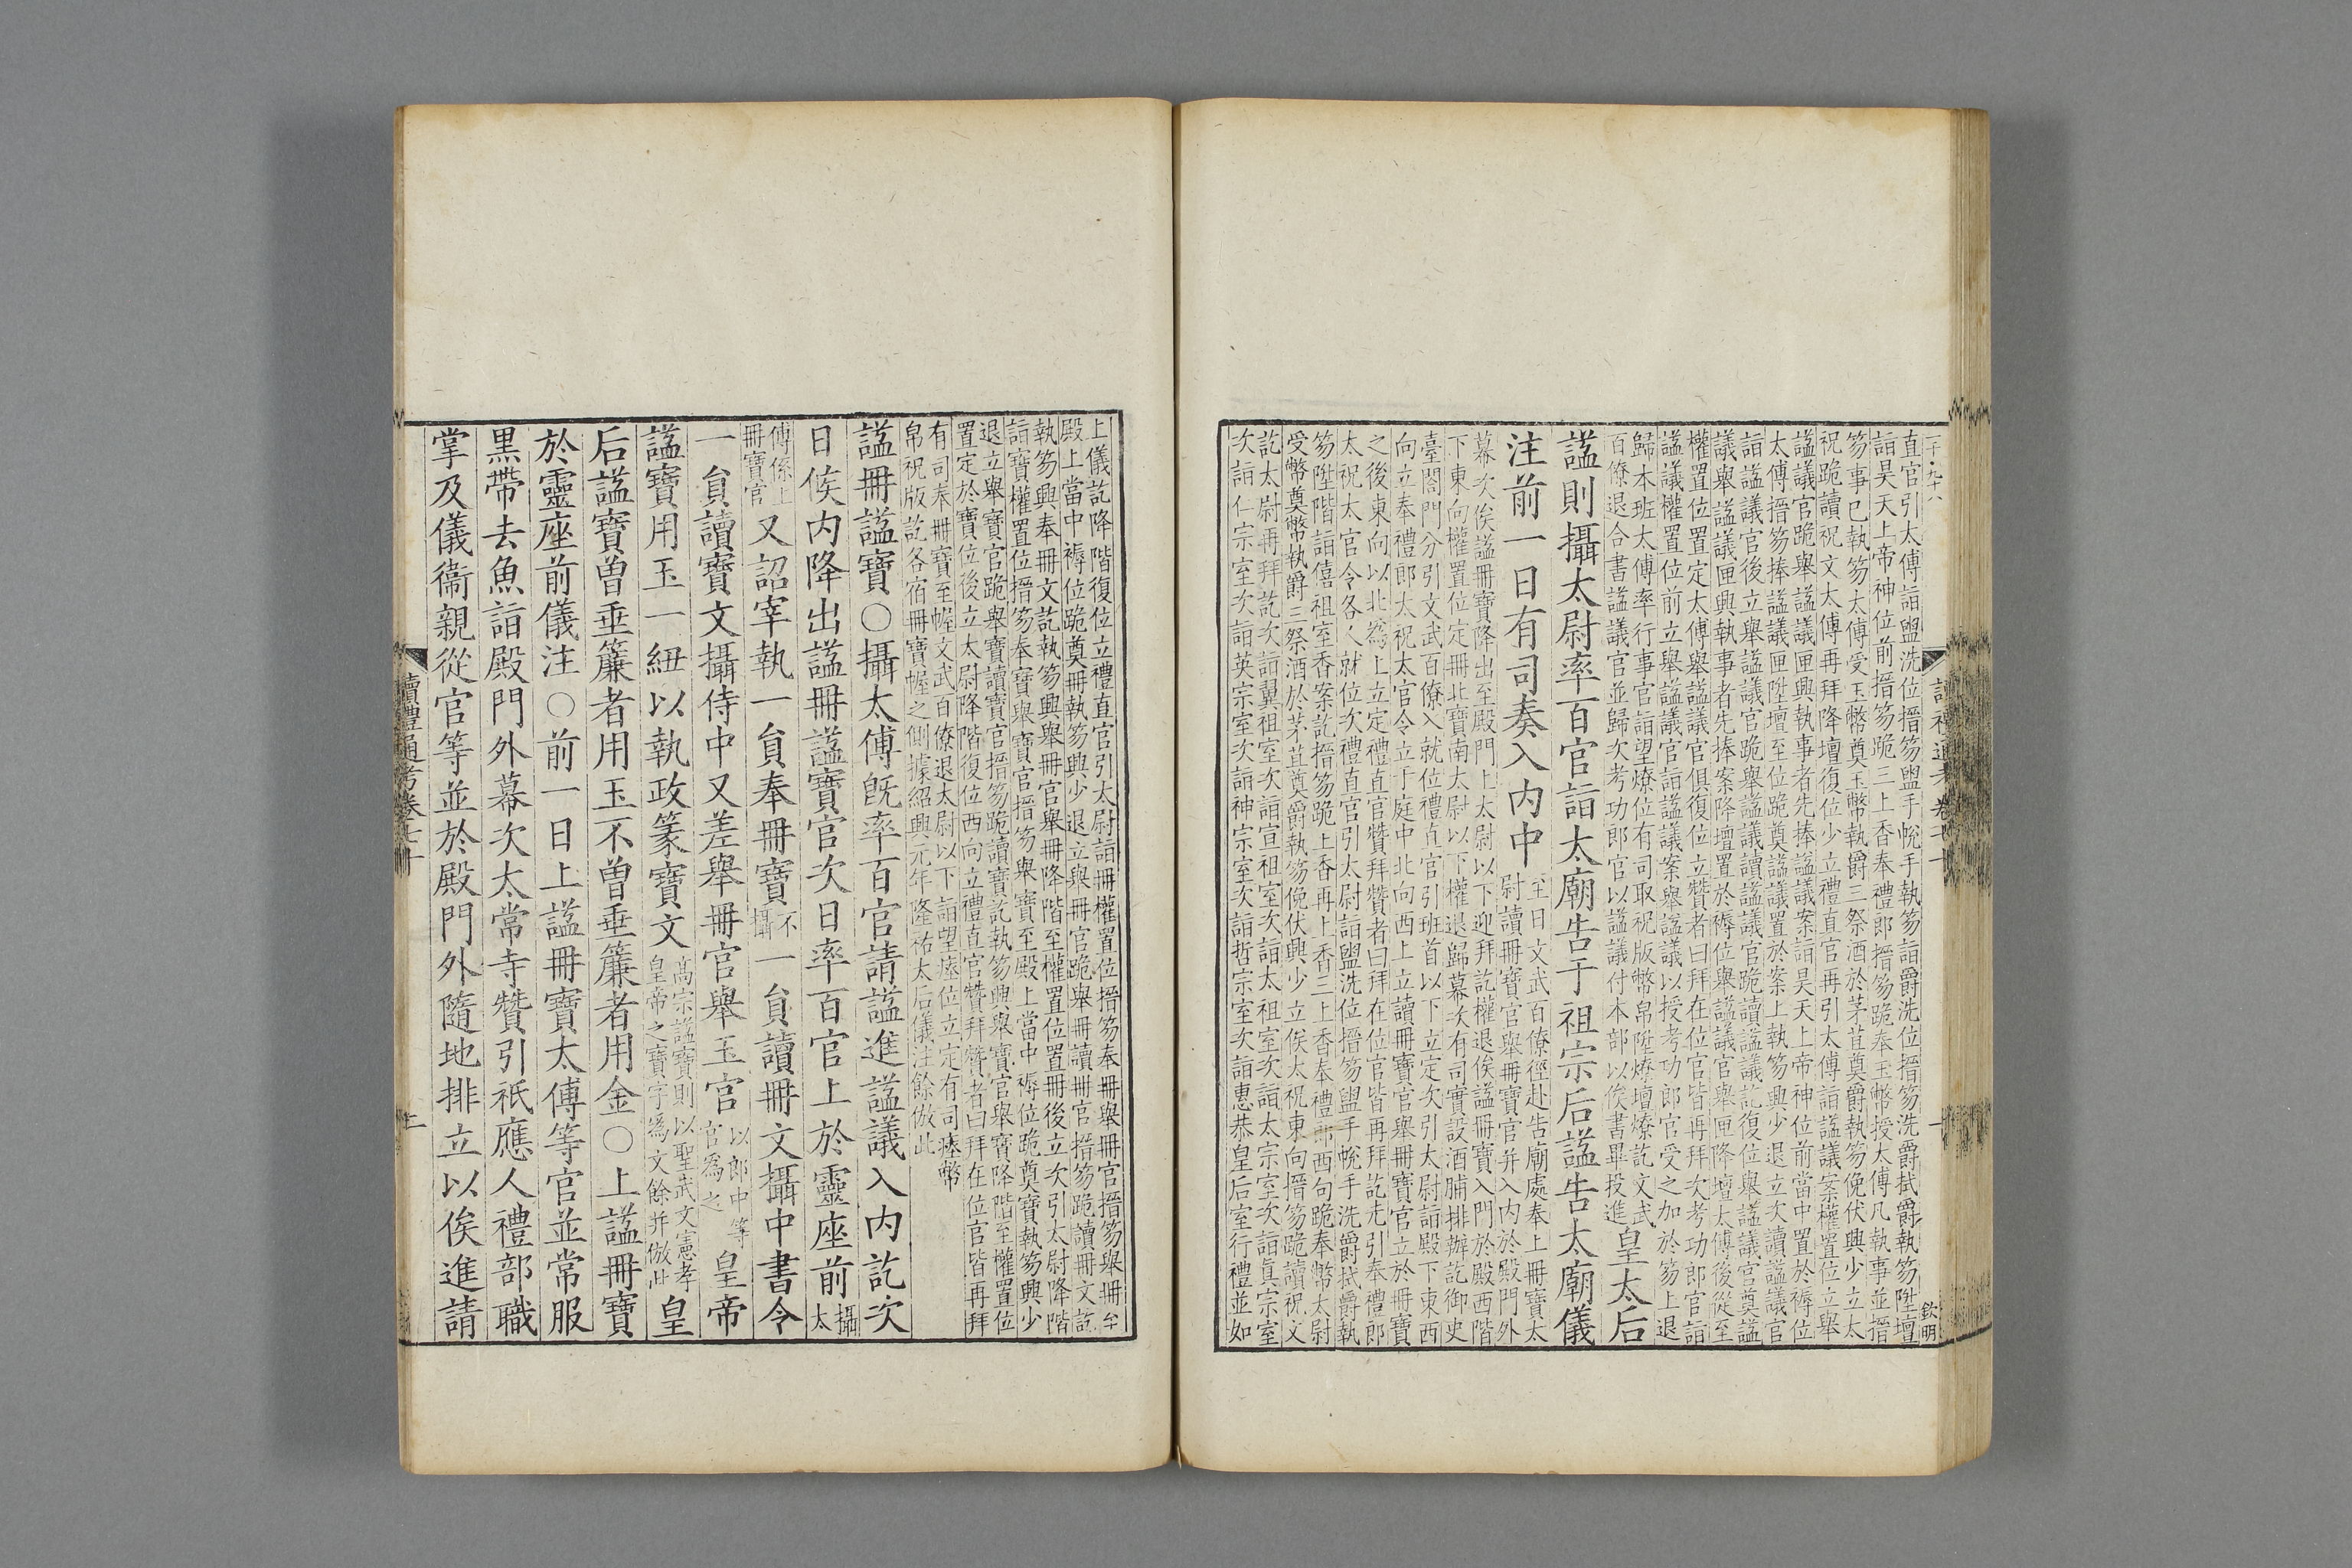 直官引太傅詣盥洗位搢笏盥手帨手執笏詣爵洗位搢笏洗爵拭爵執笏陞壇
詣昊天上帝神位前搢笏跪三上香奉禮郎搢笏跪奉玉幣授太傅凡執事並搢
笏事已執笏太傅受玉幣奠玉幣執爵三祭酒於茅苴奠爵執笏俛伏興少立太
祝跪讀祝文太傅再拜降壇復位少立禮直官再引太傅詣諡議案權置位立舉
諡議官跪舉諡議匣興執事者先捧諡議案詣昊天上帝神位前當中置於褥位
太傅搢笏捧諡議匣陞壇至位跪奠諡議置於案上執笏興少退立次讀諡議官
詣諡議官後立舉諡議官跪舉諡議讀諡議官跪讀諡議訖復位舉諡議官奠諡
議舉諡議匣興執事者先捧案降壇置於褥位舉諡議官舉匣降壇太傅後從至
權置位置定太傅舉諡議官俱復位立贊者曰拜在位官皆再拜次考功郎官詣
諡議權置位前立舉諡議官詣諡議案舉諡議以授考功郎官受之加於笏上退
歸本班太傅率行事官詣望燎位有司取祝版幣帛陞燎壇燎訖文武
百僚退合書諡議官並歸次考功郎官以諡議付本部以俟書畢投進皇太后
諡則攝太尉率百官詣太廟告于祖宗后諡告太廟儀
注前一日有司奏入內中
至日文武百僚徑赴告廟處奉上冊寶太
尉讀冊寶官舉冊寶官并入內於殿門外
幕次俟諡冊寶降出至殿門上太尉以下迎拜訖權退俟諡冊寶入門於殿西階
下東向權置位定冊北寶南太尉以下權退歸幕次有司實設酒脯排辦訖御史
臺閤門分引文武百僚入就位禮直官引班首以下立定次引太尉詣殿下東西
向立奉禮郎太祝太官令立于庭中北向西上立讀冊寶官舉冊寶官立於冊寶
之後東向以北爲上立定禮直官贊拜贊者曰拜在位官皆再拜訖先引奉禮郎
太祝太官令各人就位次禮直官引太尉詣盥洗位搢笏盥手帨手洗爵拭爵執
笏陞階詣僖祖室香案訖搢笏跪上香再上香三上香奉禮郎西向跪奉幣太尉
受幣奠幣執爵三祭酒於茅苴奠爵執笏俛伏興少立俟太祝東向搢笏跪讀祝文
訖太尉再拜訖次詣翼祖室次詣宣祖室次詣太祖室次詣太宗室次詣眞宗室
次詣仁宗室次詣英宗室次詣神宗室次詣哲宗室次詣惠恭皇后室行禮並如
欽明
上儀訖降階復位立禮直官引太尉詣冊權置位搢笏奉冊舉冊官搢笏舉冊至
殿上當中褥位跪奠冊執笏興少退立舉冊官跪舉冊讀冊官搢笏跪讀冊文訖
執笏興奉冊文訖執笏興舉冊官舉冊降階至權置位置冊後立次引太尉降階
詣寶權置位搢笏奉寶舉寶官搢笏舉寶至殿上當中褥位跪奠寶執笏興少
退立舉寶官跪舉寶讀寶官搢笏跪讀寶訖執笏興舉寶官舉寶降階至權置位
置定於寶位後立太尉降階復位西向立禮直官贊拜贊者曰拜在位官皆再拜
有司奉冊寶至幄文武百僚退太尉以下詣望瘞位立定有司瘞幣
帛祝版訖各宿冊寶幄之側據紹興元年隆祐太后儀注餘倣此
諡冊諡寶○攝太傅旣率百官請諡進諡議入內訖次
日俟內降出諡冊諡寶官次日率百官上於靈座前
攝太
傅係上
冊寶官
又詔宰執一員奉冊寶
不攝
一員讀冊文攝中書令
一員讀寶文攝侍中又差舉冊官舉玉官
以郎中等
官爲之
皇帝
諡寶用玉一紐以執政篆寶文
高宗諡寶則以聖武文憲孝
皇帝之寶字爲文餘并倣此
皇
后諡寶曽垂簾者用玉不曽垂簾者用金○上諡冊寶
於靈座前儀注○前一日上諡冊寶太傅等官並常服
黑帶去魚詣殿門外幕次太常寺贊引祇應人禮部職
掌及儀衞親從官等並於殿門外隨地排立以俟進請
讀禮通考卷七十